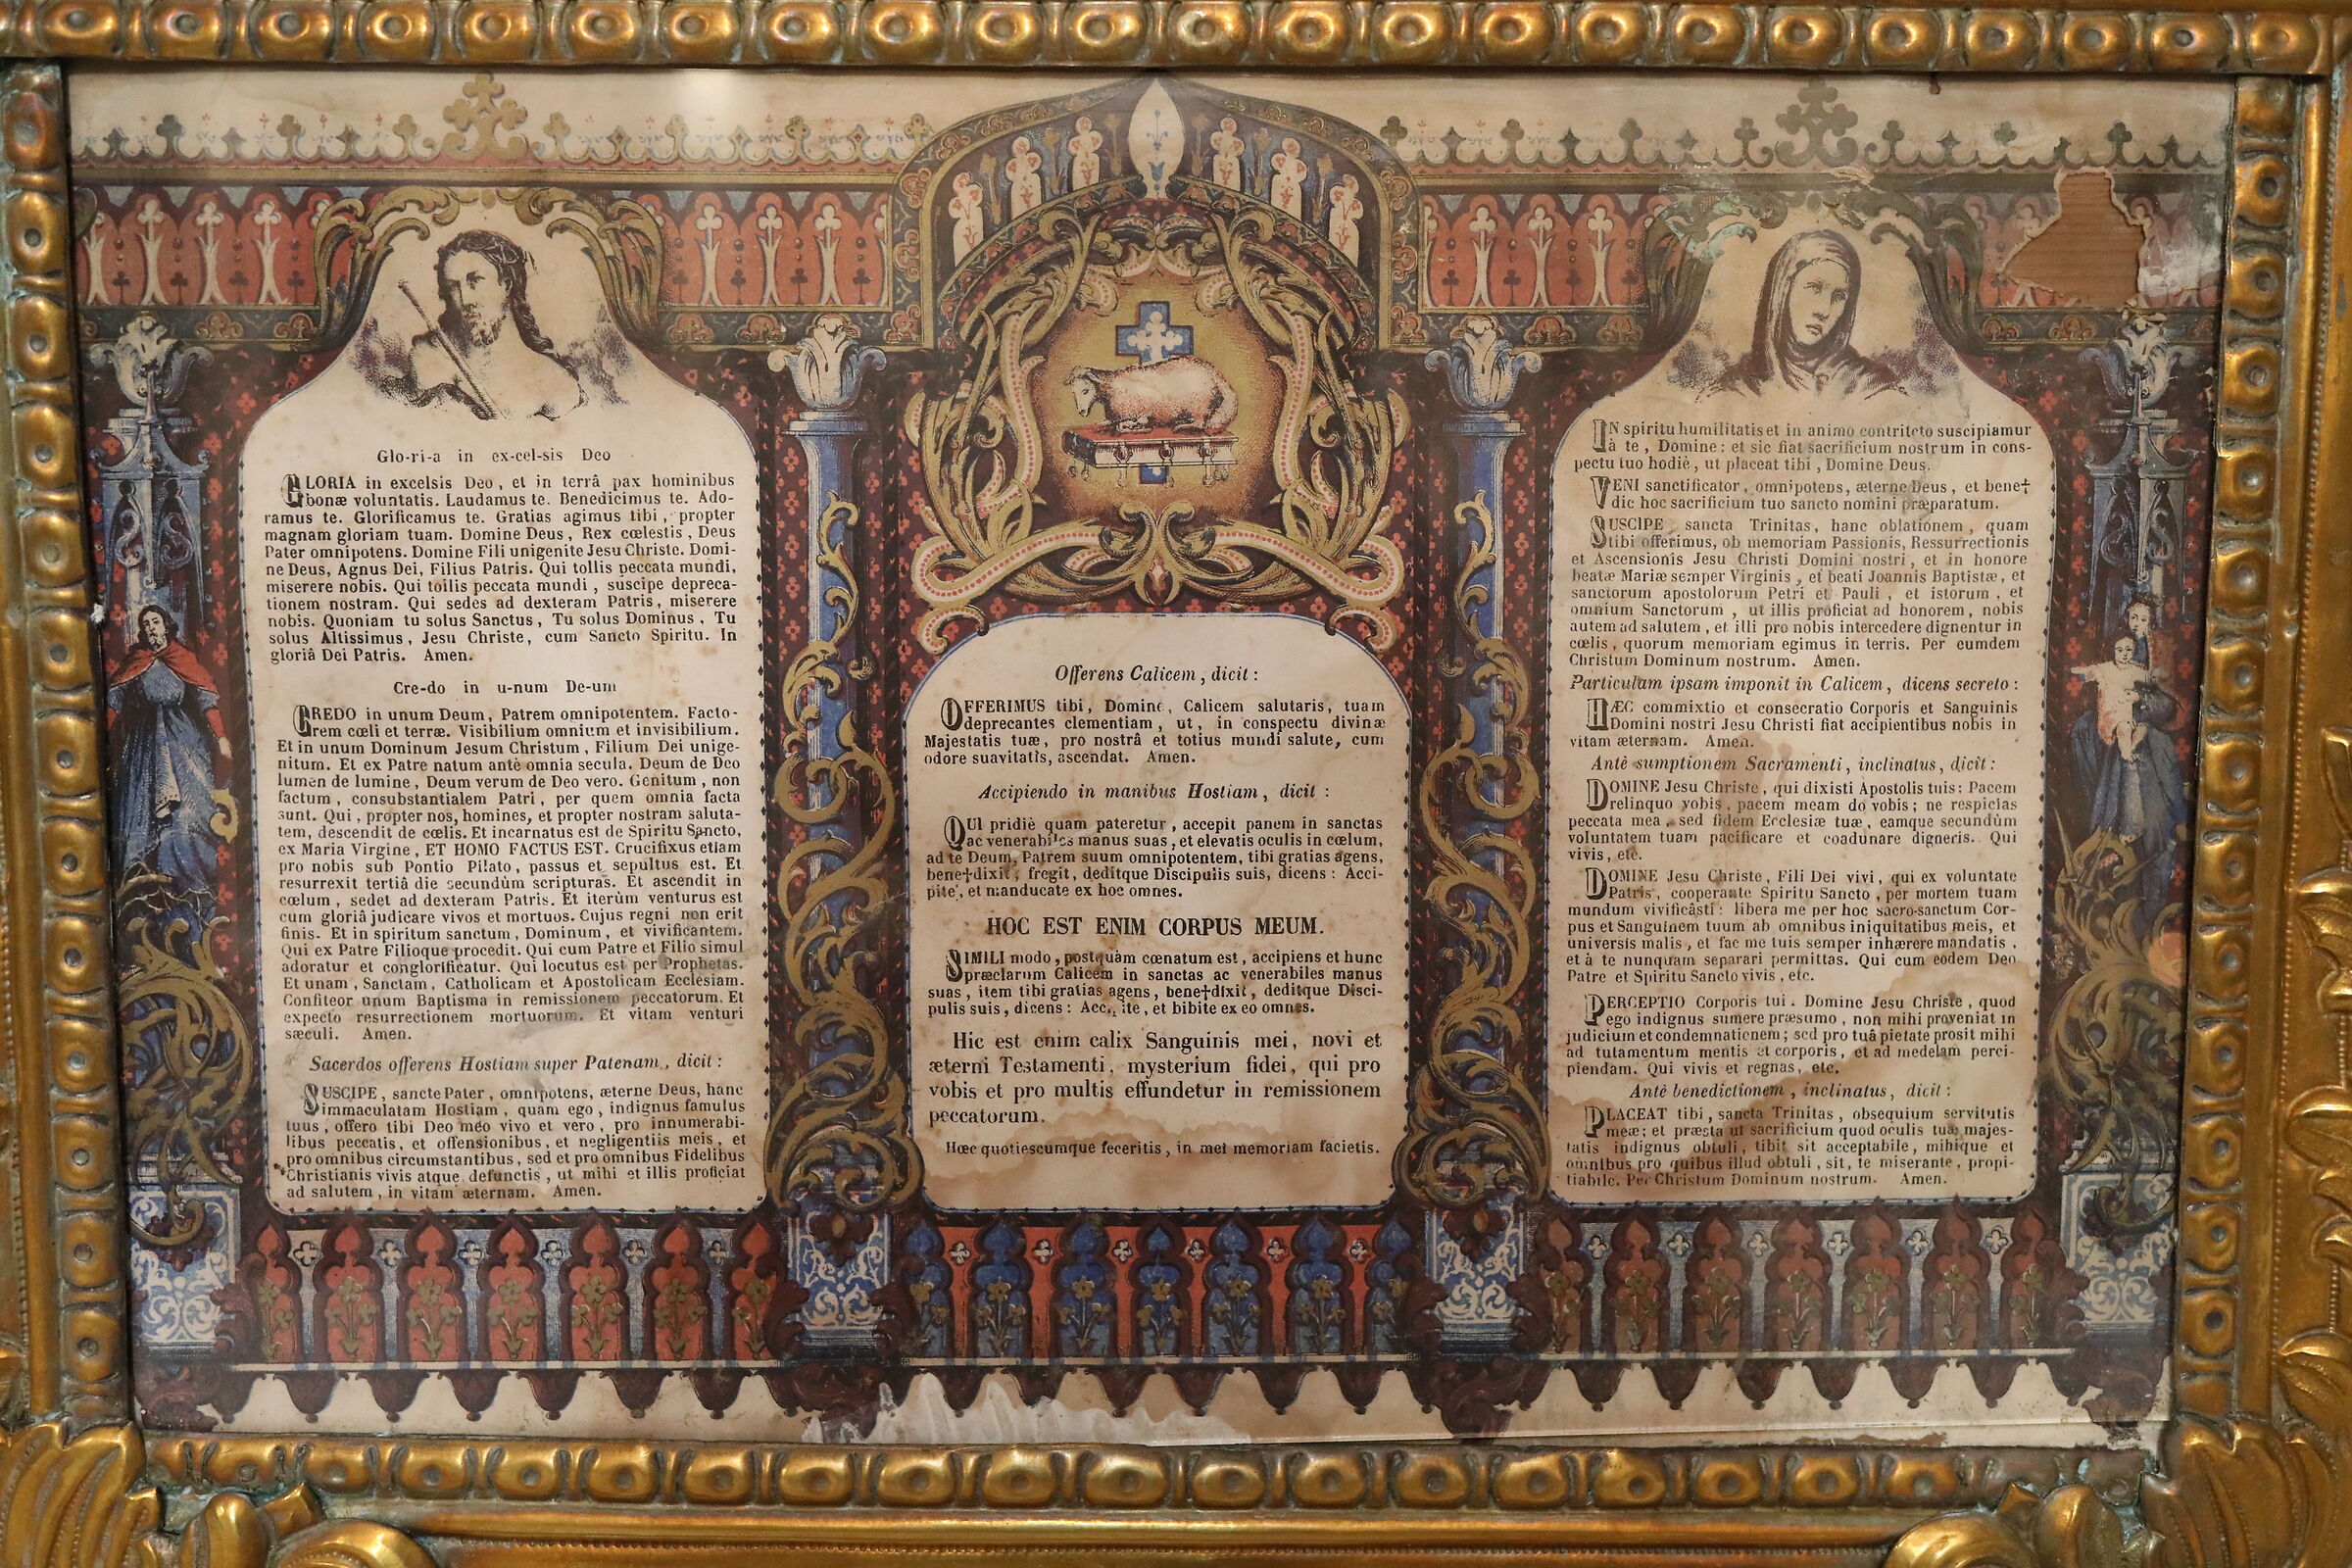 Glo-ri-a in ex-cel-sis Deo
GLORIA in excelsis Deo, et in terrâ pax hominibus
bonæ voluntatis. Laudamus te. Benedicimus te. Ado-
ramus te. Glorificamus te. Gratias agimus tibi, propter
magnam gloriam tuam. Domine Deus, Rex cœlestis, Deus
Pater omnipotens. Domine Fili unigenite Jesu Christe. Domi-
ne Deus, Agnus Dei, Filius Patris. Qui tollis peccata mundi,
miserere nobis. Qui tollis peccata mundi, suscipe depreca-
tionem nostram. Qui sedes ad dexteram Patris, miserere
nobis. Quoniam tu solus Sanctus, Tu solus Dominus, Tu
solus Altissimus, Jesu Christe, cum Sancto Spiritu. In
gloriâ Dei Patris. Amen.
Cre-do in u-num De-um
CREDO in unum Deum, Patrem omnipotentem. Facto-
rem cœli et terræ. Visibilium omnium et invisibilium.
Et in unum Dominum Jesum Christum, Filium Dei unige-
nitum. Et ex Patre natum antè omnia secula. Deum de Deo
lumen de lumine, Deum verum de Deo vero. Genitum, non
factum, consubstantialem Patri, per quem omnia facta
sunt. Qui, propter nos, homines, et propter nostram saluta-
tem, descendit de cœlis. Et incarnatus est de Spiritu Sancto,
ex Maria Virgine, ET HOMO FACTUS EST. Crucifixus etiam
pro nobis sub Pontio Pilato, passus et sepultus est. Et
resurrexit tertiâ die secundùm scripturas. Et ascendit in
cœlum, sedet ad dexteram Patris. Et iterùm venturus est
cum gloriâ judicare vivos et mortuos. Cujus regni non erit
finis. Et in spiritum sanctum, Dominum, et vivificantem.
Qui ex Patre Filioque procedit. Qui cum Patre et Filio simul
adoratur et conglorificatur. Qui locutus est per Prophetas.
Et unam, Sanctam, Catholicam et Apostolicam Ecclesiam.
Confiteor unum Baptisma in remissionem peccatorum. Et
expecto resurrectionem mortuorum. Et vitam venturi
sæculi. Amen.
Sacerdos offerens Hostiam super Patenam, dicit:
SUSCIPE, sancte Pater, omnipotens, æterne Deus, hanc
immaculatam Hostiam, quam ego, indignus famulus
tuus, offero tibi Deo meo vivo et vero, pro innumerabi-
libus peccatis, et offensionibus, et negligentiis meis, et
pro omnibus circumstantibus, sed et pro omnibus Fidelibus
Christianis vivis atque defunctis, ut mihi et illis proficiat
ad salutem, in vitam æternam. Amen.
Offerens Calicem, dicit:
OFFERIMUS tibi, Domine, Calicem salutaris, tuam
deprecantes clementiam, ut, in conspectu divinæ
Majestatis tuæ, pro nostrâ et totius mundi salute, cum
odore suavitatis, ascendat. Amen.
Accipiendo in manibus Hostiam, dicit:
QUI pridiè quam pateretur, accepit panem in sanctas
ac venerabiles manus suas, et elevatis oculis in cœlum,
ad te Deum, Patrem suum omnipotentem, tibi gratias agens,
bene†dixit, fregit, deditque Discipulis suis, dicens: Acci-
pite, et manducate ex hoc omnes.
HOC EST ENIM CORPUS MEUM.
SIMILI modo, postquàm cœnatum est, accipiens et hunc
præclarum Calicem in sanctas ac venerabiles manus
suas, item tibi gratias agens, bene†dixit, deditque Disci-
pulis suis, dicens: Accipite, et bibite ex eo omnes.
Hic est enim calix Sanguinis mei, novi et
æterni Testamenti, mysterium fidei, qui pro
vobis et pro multis effundetur in remissionem
peccatorum.
Hœc quotiescumque feceritis, in mei memoriam facietis.
IN spiritu humilitatis et in animo contrito suscipiamur
à te, Domine: et sic fiat sacrificium nostrum in cons-
pectu tuo hodiè, ut placeat tibi, Domine Deus.
VENI sanctificator, omnipotens, æterne Deus, et bene†
dic hoc sacrificium tuo sancto nomini præparatum.
SUSCIPE sancta Trinitas, hanc oblationem, quam
tibi offerimus, ob memoriam Passionis, Ressurrectionis
et Ascensionis Jesu Christi Domini nostri, et in honore
beatæ Mariæ semper Virginis, et beati Joannis Baptistæ, et
sanctorum apostolorum Petri et Pauli, et istorum, et
omnium Sanctorum, ut illis proficiat ad honorem, nobis
autem ad salutem, et illi pro nobis intercedere dignentur in
cœlis, quorum memoriam egimus in terris. Per eumdem
Christum Dominum nostrum. Amen.
Particulam ipsam imponit in Calicem, dicens secreto:
HÆC commixtio et consecratio Corporis et Sanguinis
Domini nostri Jesu Christi fiat accipientibus nobis in
vitam æternam. Amen.
Antè sumptionem Sacramenti, inclinatus, dicit:
DOMINE Jesu Christe, qui dixisti Apostolis tuis: Pacem
relinquo vobis, pacem meam do vobis; ne respicias
peccata mea, sed fidem Ecclesiæ tuæ, eamque secundùm
voluntatem tuam pacificare et coadunare digneris. Qui
vivis, etc.
DOMINE Jesu Christe, Fili Dei vivi, qui ex voluntate
Patris, cooperante Spiritu Sancto, per mortem tuam
mundum vivificâsti: libera me per hoc sacro-sanctum Cor-
pus et Sanguinem tuum ab omnibus iniquitatibus meis, et
universis malis, et fac me tuis semper inhærere mandatis,
et à te nunquam separari permittas. Qui cum eodem Deo
Patre et Spiritu Sancto vivis, etc.
PERCEPTIO Corporis tui. Domine Jesu Christe, quod
ego indignus sumere præsumo, non mihi proveniat in
judicium et condemnationem; sed pro tuâ pietate prosit mihi
ad tutamentum mentis et corporis, et ad medelam perci-
piendam. Qui vivis et regnas, etc.
Antè benedictionem, inclinatus, dicit:
PLACEAT tibi, sancta Trinitas, obsequium servitutis
meæ; et præsta ut sacrificium quod oculis tuæ majes-
tatis indignus obtuli, tibit sit acceptabile, mihique et
omnibus pro quibus illud obtuli, sit, te miserante, propi-
tiabile. Per Christum Dominum nostrum. Amen.